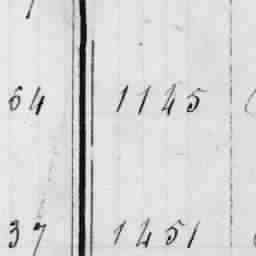 64 1145
37 1451